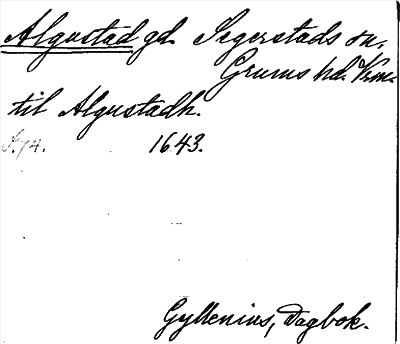 Algustad gd. Segerstads sn,
Grums hd. Vrm.
til Algustadh.
S. 74. 1643.
Gyllenius, Dagbok.